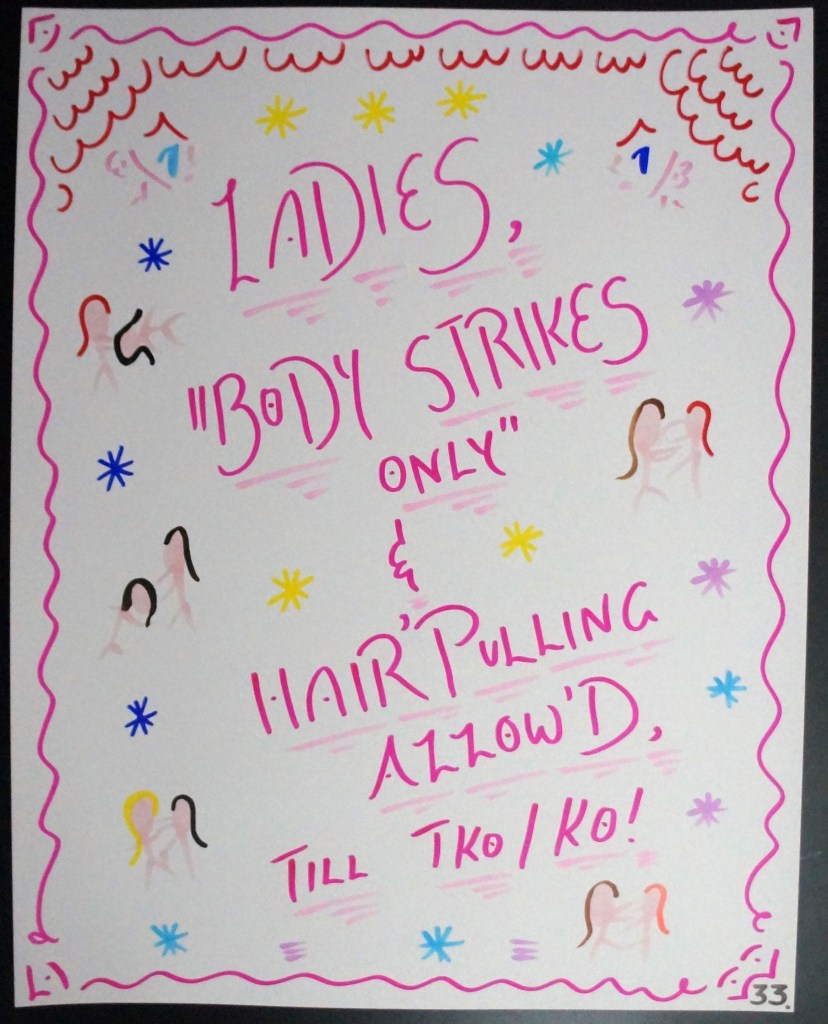 1 1
LADIES,
"BODY STRIKES
ONLY"
&
HAIR'PULLING
ALLOW'D,
TILL TKO/KO!
33.